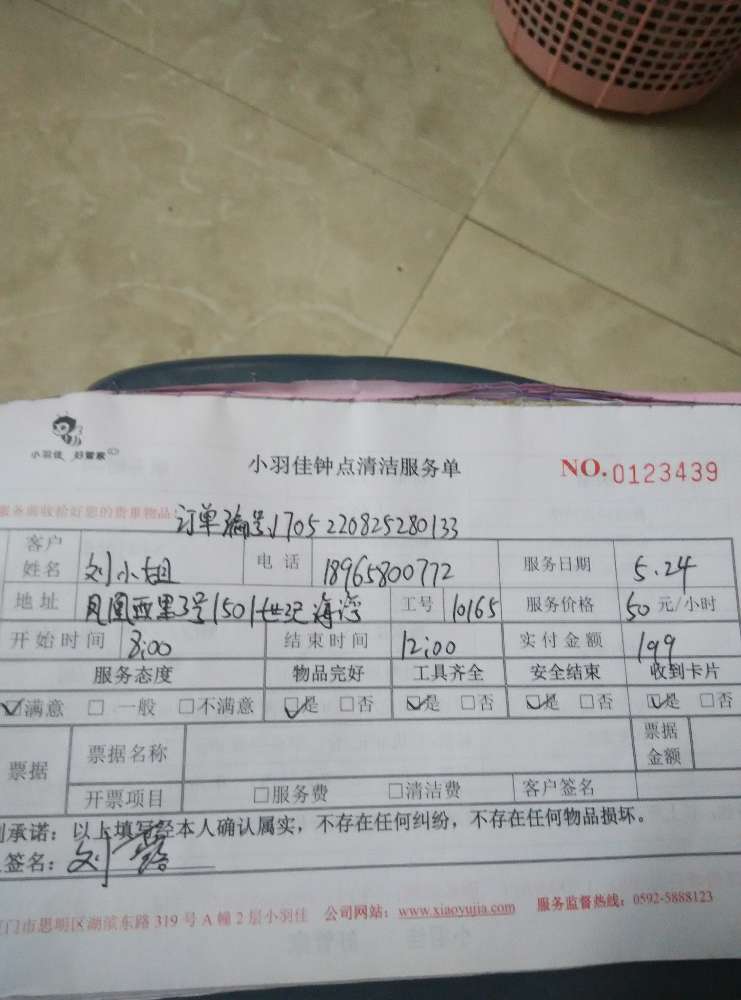 小羽佳 好管家
小羽佳钟点清洁服务单
NO.0123439
服务前收拾好您的贵重物品
订单编号1705220825280133
客户姓名 刘小姐 电话 18965800772 服务日期 5.24
地址 凤凰西里3号1501世纪海湾 工号 10165 服务价格 50元/小时
开始时间 8:00 结束时间 12:00 实付金额 199
服务态度 物品完好 工具齐全 安全结束 收到卡片
☑满意 □一般 □不满意 ☑是 □否 ☑是 □否 ☑是 □否 ☑是 □否
票据 票据名称 票据金额
开票项目 □服务费 □清洁费 客户签名
承诺：以上填写经本人确认属实，不存在任何纠纷，不存在任何物品损坏。
签名：刘露
门市思明区湖滨东路319号A幢2层小羽佳 公司网站：www.xiaoyujia.com 服务监督热线：0592-5888123